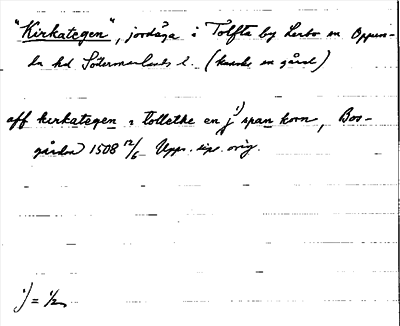 "Kirkategen", jordäga i Tolfta by Lerbo sn Oppun-
da hd Södermanlands l. (kanske en gård)
aff kirkategen i tollethe en j¹) span korn, Bos-
gården 1508 12/6 Upps. dipl. orig.
¹) = 1/2